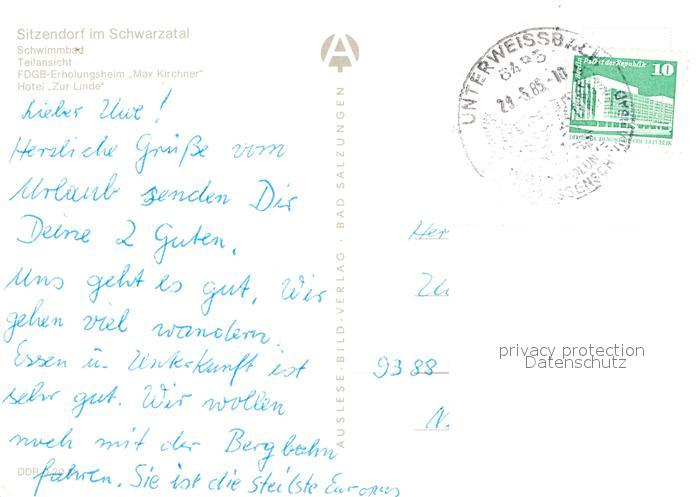 Sitzendorf im Schwarzatal
Schwimmbad
Teilansicht
FDGB-Erholungsheim „Max Kirchner“
Hotel „Zur Linde“
Lieber Uwe!
Herzliche Grüße vom
Urlaub senden Dir
Deine 2 Guten.
Uns geht es gut. Wir
gehen viel wandern.
Essen u. Unterkunft ist
sehr gut. Wir wollen
noch mit der Bergbahn
fahren. Sie ist die steilste Europas
DDR
AUSLESE-BILD-VERLAG · BAD SALZUNGEN
UNTERWEISSBACH
28.-5.85.-10
Berlin Palast der Republik
10
Her
9388
N
privacy protection
Datenschutz